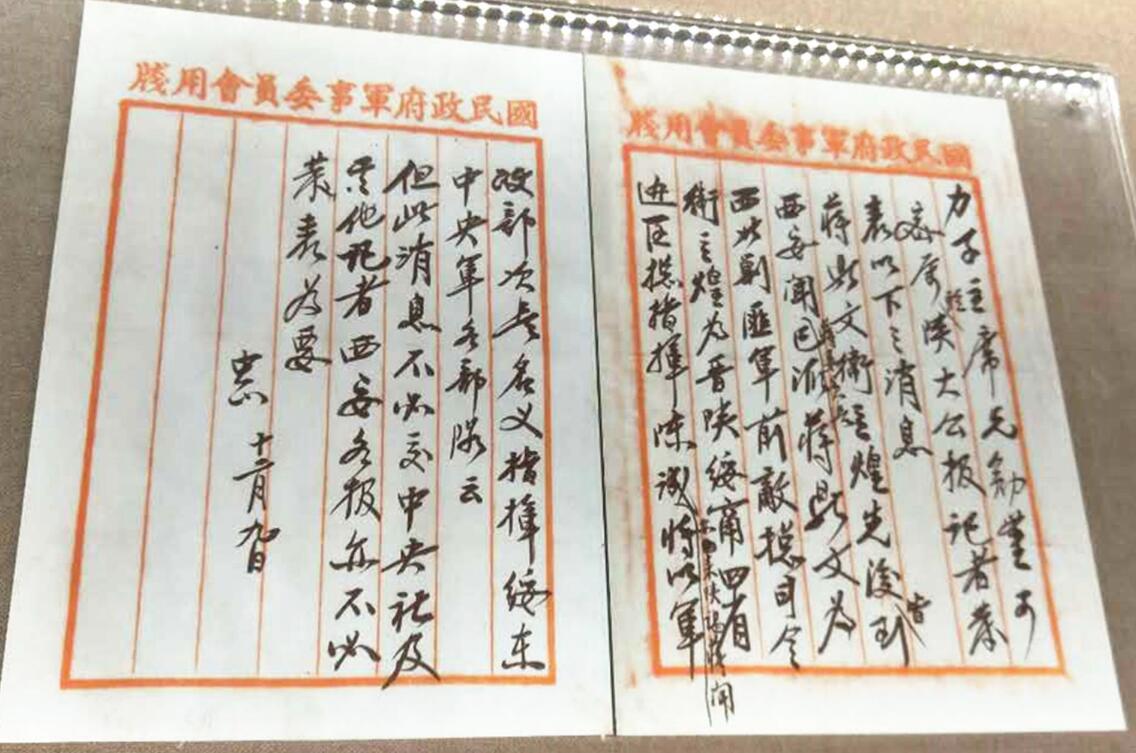 國民政府軍事委員會用牋
力子主席兄勛鑒可
密屬駐陝大公报記者發
表以下之消息
蔣鼎文衛立煌先後皆到
西安聞蔣委員長已派蔣鼎文為
西北剿匪軍前敵總司令
衛立煌為晉陝綏甯四省
边區總指揮陳誠亦來陝謁蔣聞將以軍
國民政府軍事委員會用牋
政部次長名义指揮綏東
中央軍各部隊云
但此消息不必交中央社及
其他記者西安各报亦不必
發表為要
中正 十二月九日